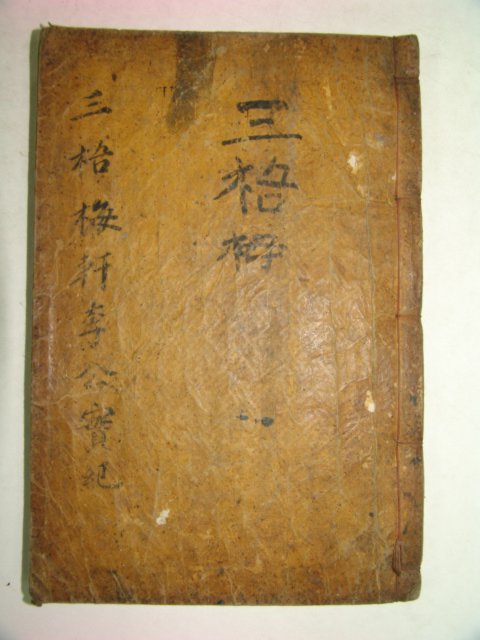 三梧軒
三梧梅軒李公實紀